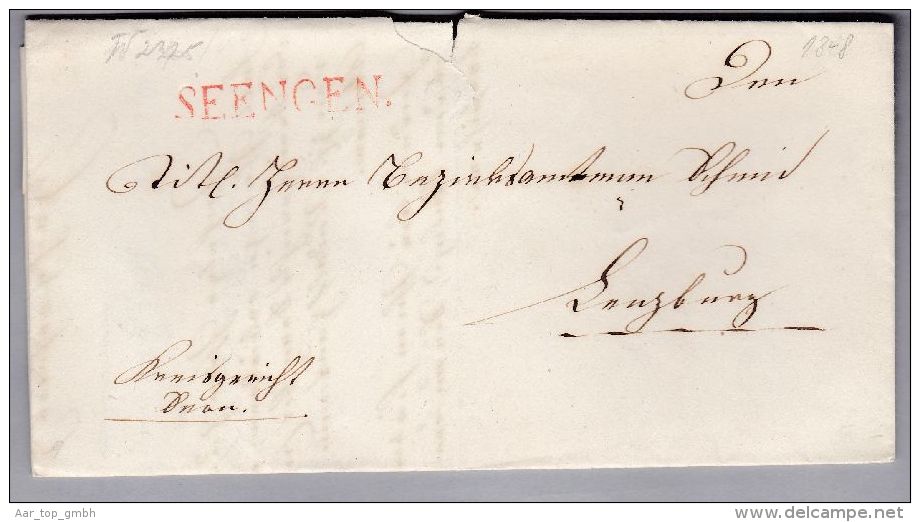 W 2325
1828
SEENGEN.
Den
Titl. Herrn Bezirksamtmann Schmid
Lenzburg
Kreisgericht
Seon.
Aar_top_gmbh
www.delcampe.net